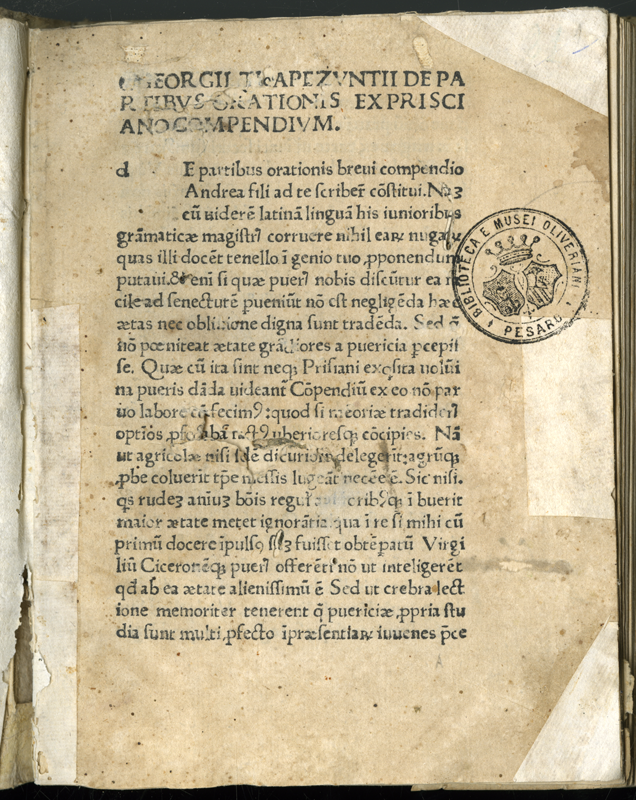 GEORGII TRAPEZVNTII DE PA
RTIBVS ORATIONIS EX PRISCI
ANO COMPENDIVM.
d E partibus orationis breui compendio
Andrea fili ad te scriber̄ cōstitui. Nāꝫ
cū uiderē latinā linguā his iunioribus
grāmaticæ magistrꝭ corruere nihil eaꝝ nugaꝝ
quas illi docēt tenello īgenio tuo ꝓponendum
putaui. & enī si quæ puerꝭ nobis discūtur ea
cile ad senectutē ꝑueniūt nō est negligēda hæc
ætas nec obliuione digna sunt tradēda. Sed q̄
nō pœniteat ætate grādiores a puericia ꝑcepis
se. Quæ cū ita sint neqꝫ Prisiani exq̄sita uolūi
na pueris dāda uideant̄ Cōpendiū ex eo nō par
uo labore fecimꝰ: quod si meoriæ tradiderꝭ
optīos uberioresqꝫ cōcipies. Nā
ut agricolæ nisi delegerit: agrūqꝫ
ꝓbe coluerit tꝑe messis lugeāt necēe ē. Sic nisi.
qs rudeꝫ aniūꝫ bōis ībuerit
maior ætate metet ignorātia. qua ī re si mihi cū
primū docere īpulsꝰ fuisset obtēꝑatū Virgi
liū Ciceronēqꝫ puerꝭ offerēti nō ut inteligerēt
qđ ab ea ætate alienissimū ē Sed ut crebra lect
ione memoriter tenerent q̄ puericiæ ꝓpria stu
dia sunt multi ꝓfecto īpræsentiaꝝ iuuenes ꝑce
BIBLIOTECA E MUSEI OLIVERIANI
PESARO